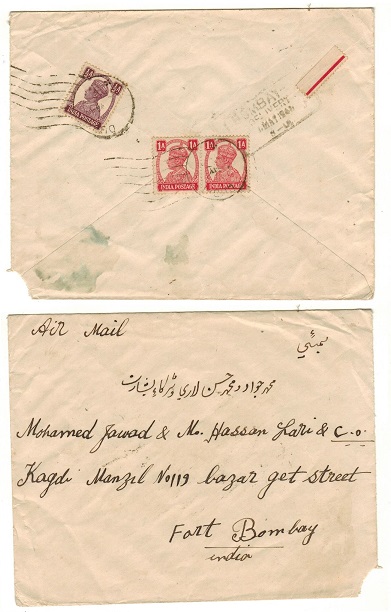 ½A ½A
INDIA POSTAGE
BOMBAY
1A 1A 1A 1A
INDIA POSTAGE INDIA POSTAGE
Air Mail
بمبئي
محمد جواد و محمد حسن لاري
Mohamed Jawad & Mo. Hassan Lari & C.o.
Kagdi Manzil No 119 bazar get street
Fort Bombay
india